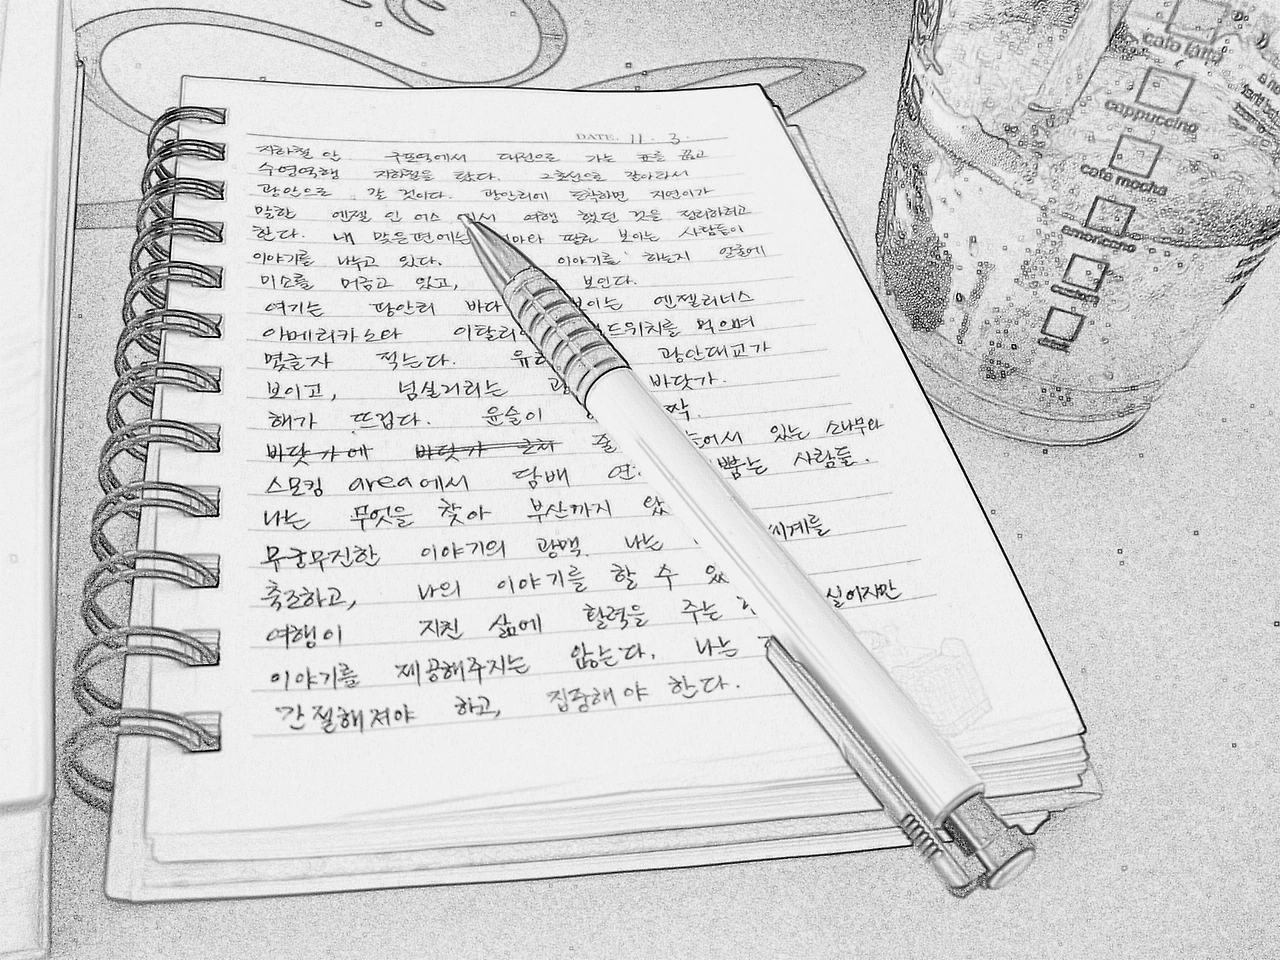 DATE. 11. 3.
지하철 안 구포역에서 대전으로 가는 표를 끊고
수영역행 지하철을 탔다. 2호선으로 갈아타서
광안으로 갈 것이다. 광안리에 도착하면 지연이가
말한 엔젤 인 어스 에서 여행 했던 것을 정리하려고
한다. 내 맞은편에는 엄마와 딸로 보이는 사람들이
이야기를 나누고 있다. 이야기를 하는지 얼굴에
미소를 머금고 있고, 보인다.
여기는 광안리 바다 보이는 엔젤리너스
아메리카노와 이탈리 샌드위치를 먹으며
몇글자 적는다. 유리 광안대교가
보이고, 넘실거리는 광 바닷가.
해가 뜨겁다. 윤슬이
바닷가에 바닷가 근처 줄 늘어서 있는 소나무와
스모킹 area에서 담배 연 뿜는 사람들.
나는 무엇을 찾아 부산까지 왔
무궁무진한 이야기의 광맥. 나는 세계를
축조하고, 나의 이야기를 할 수 있
여행이 지친 삶에 활력을 주는 싶어지만
이야기를 제공해주지는 않는다. 나는
간절해져야 하고, 집중해야 한다.
cafe latte
cappuccino
cafe mocha
americano